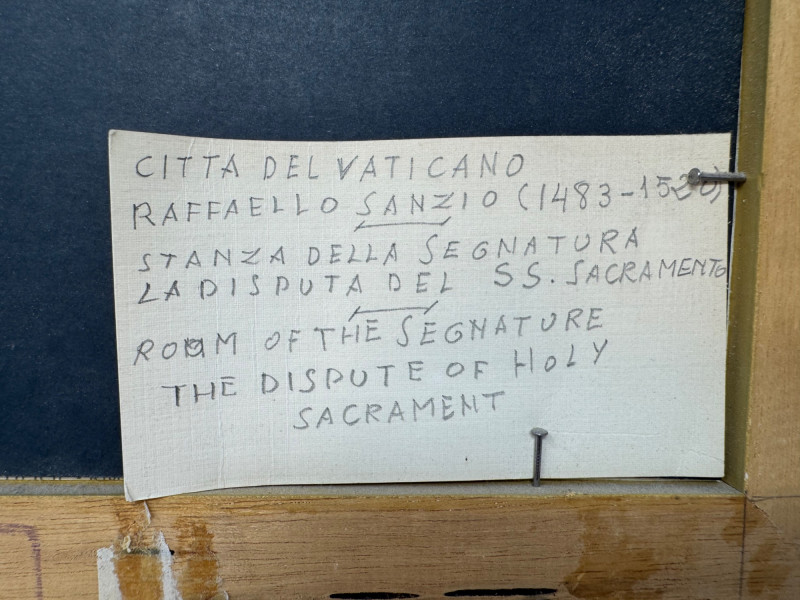 CITTA DEL VATICANO
RAFFAELLO SANZIO (1483-1520)
STANZA DELLA SEGNATURA
LA DISPUTA DEL SS. SACRAMENTO
ROOM OF THE SEGNATURE
THE DISPUTE OF HOLY
SACRAMENT